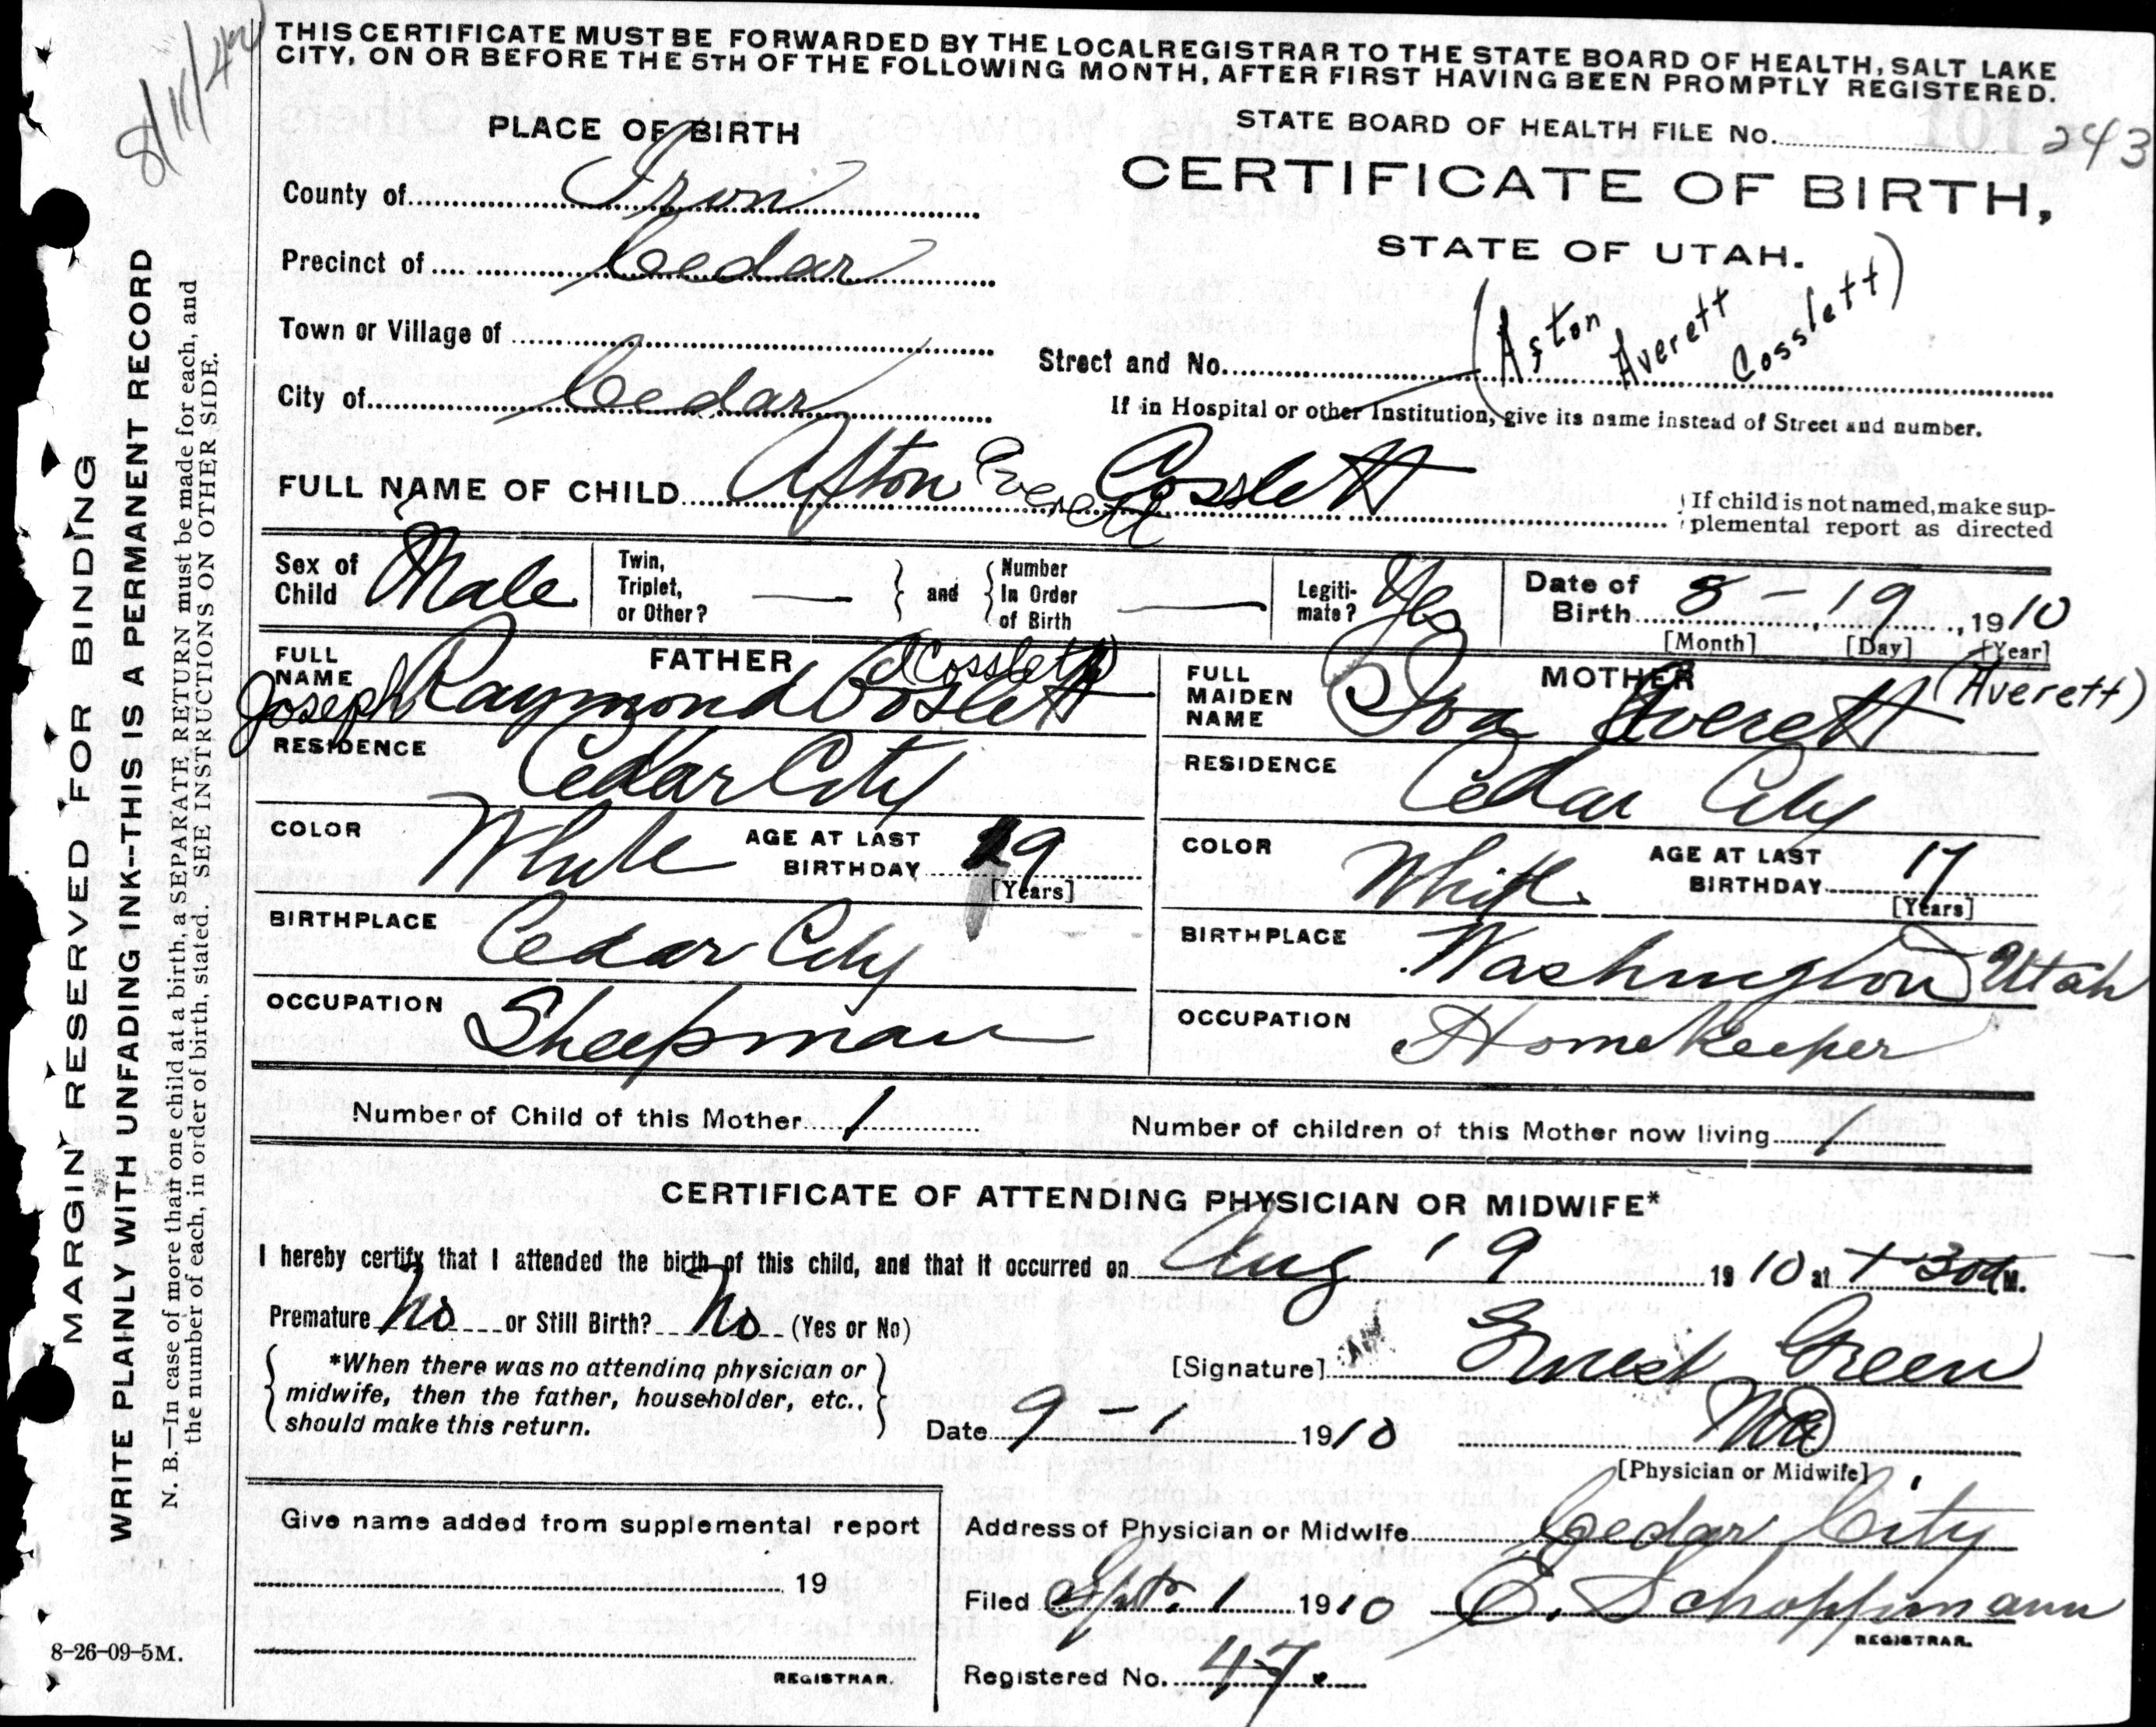 8/11/42
THIS CERTIFICATE MUST BE FORWARDED BY THE LOCAL REGISTRAR TO THE STATE BOARD OF HEALTH, SALT LAKE
CITY, ON OR BEFORE THE 5TH OF THE FOLLOWING MONTH, AFTER FIRST HAVING BEEN PROMPTLY REGISTERED.
MARGIN RESERVED FOR BINDING
WRITE PLAINLY WITH UNFADING INK--THIS IS A PERMANENT RECORD
N. B.—In case of more than one child at a birth, a SEPARATE RETURN must be made for each, and
the number of each, in order of birth, stated. SEE INSTRUCTIONS ON OTHER SIDE.
PLACE OF BIRTH
STATE BOARD OF HEALTH FILE No. 243
CERTIFICATE OF BIRTH,
STATE OF UTAH.
County of Iron
Precinct of Cedar
Town or Village of
City of Cedar
(Aston Averett Cosslett)
Street and No.
If in Hospital or other Institution, give its name instead of Street and number.
FULL NAME OF CHILD Afton Everett Cosslett
If child is not named, make sup-
plemental report as directed
Sex of Child Male
Twin, Triplet, or Other? — and Number In Order of Birth —
Legiti-mate? Yes
Date of Birth 8 - 19, 1910
[Month] [Day] [Year]
FATHER
FULL NAME Joseph Raymond Coslett (Cosslett)
MOTHER
FULL MAIDEN NAME Iva Averett (Averett)
RESIDENCE Cedar City
RESIDENCE Cedar City
COLOR White AGE AT LAST BIRTHDAY 19 [Years]
COLOR White AGE AT LAST BIRTHDAY 17 [Years]
BIRTHPLACE Cedar City
BIRTHPLACE Washington Utah
OCCUPATION Sheepman
OCCUPATION Home Keeper
Number of Child of this Mother 1
Number of children of this Mother now living 1
CERTIFICATE OF ATTENDING PHYSICIAN OR MIDWIFE*
I hereby certify that I attended the birth of this child, and that it occurred on Aug 19 1910 at M.
Premature No or Still Birth? No (Yes or No)
*When there was no attending physician or
midwife, then the father, householder, etc.,
should make this return.
[Signature] Ernest Green
Date 9 - 1 1910
[Physician or Midwife]
Give name added from supplemental report
19
REGISTRAR.
Address of Physician or Midwife Cedar City
Filed Sept. 1 1910 E. Schoppmann
REGISTRAR.
Registered No. 47.
8-26-09-5M.